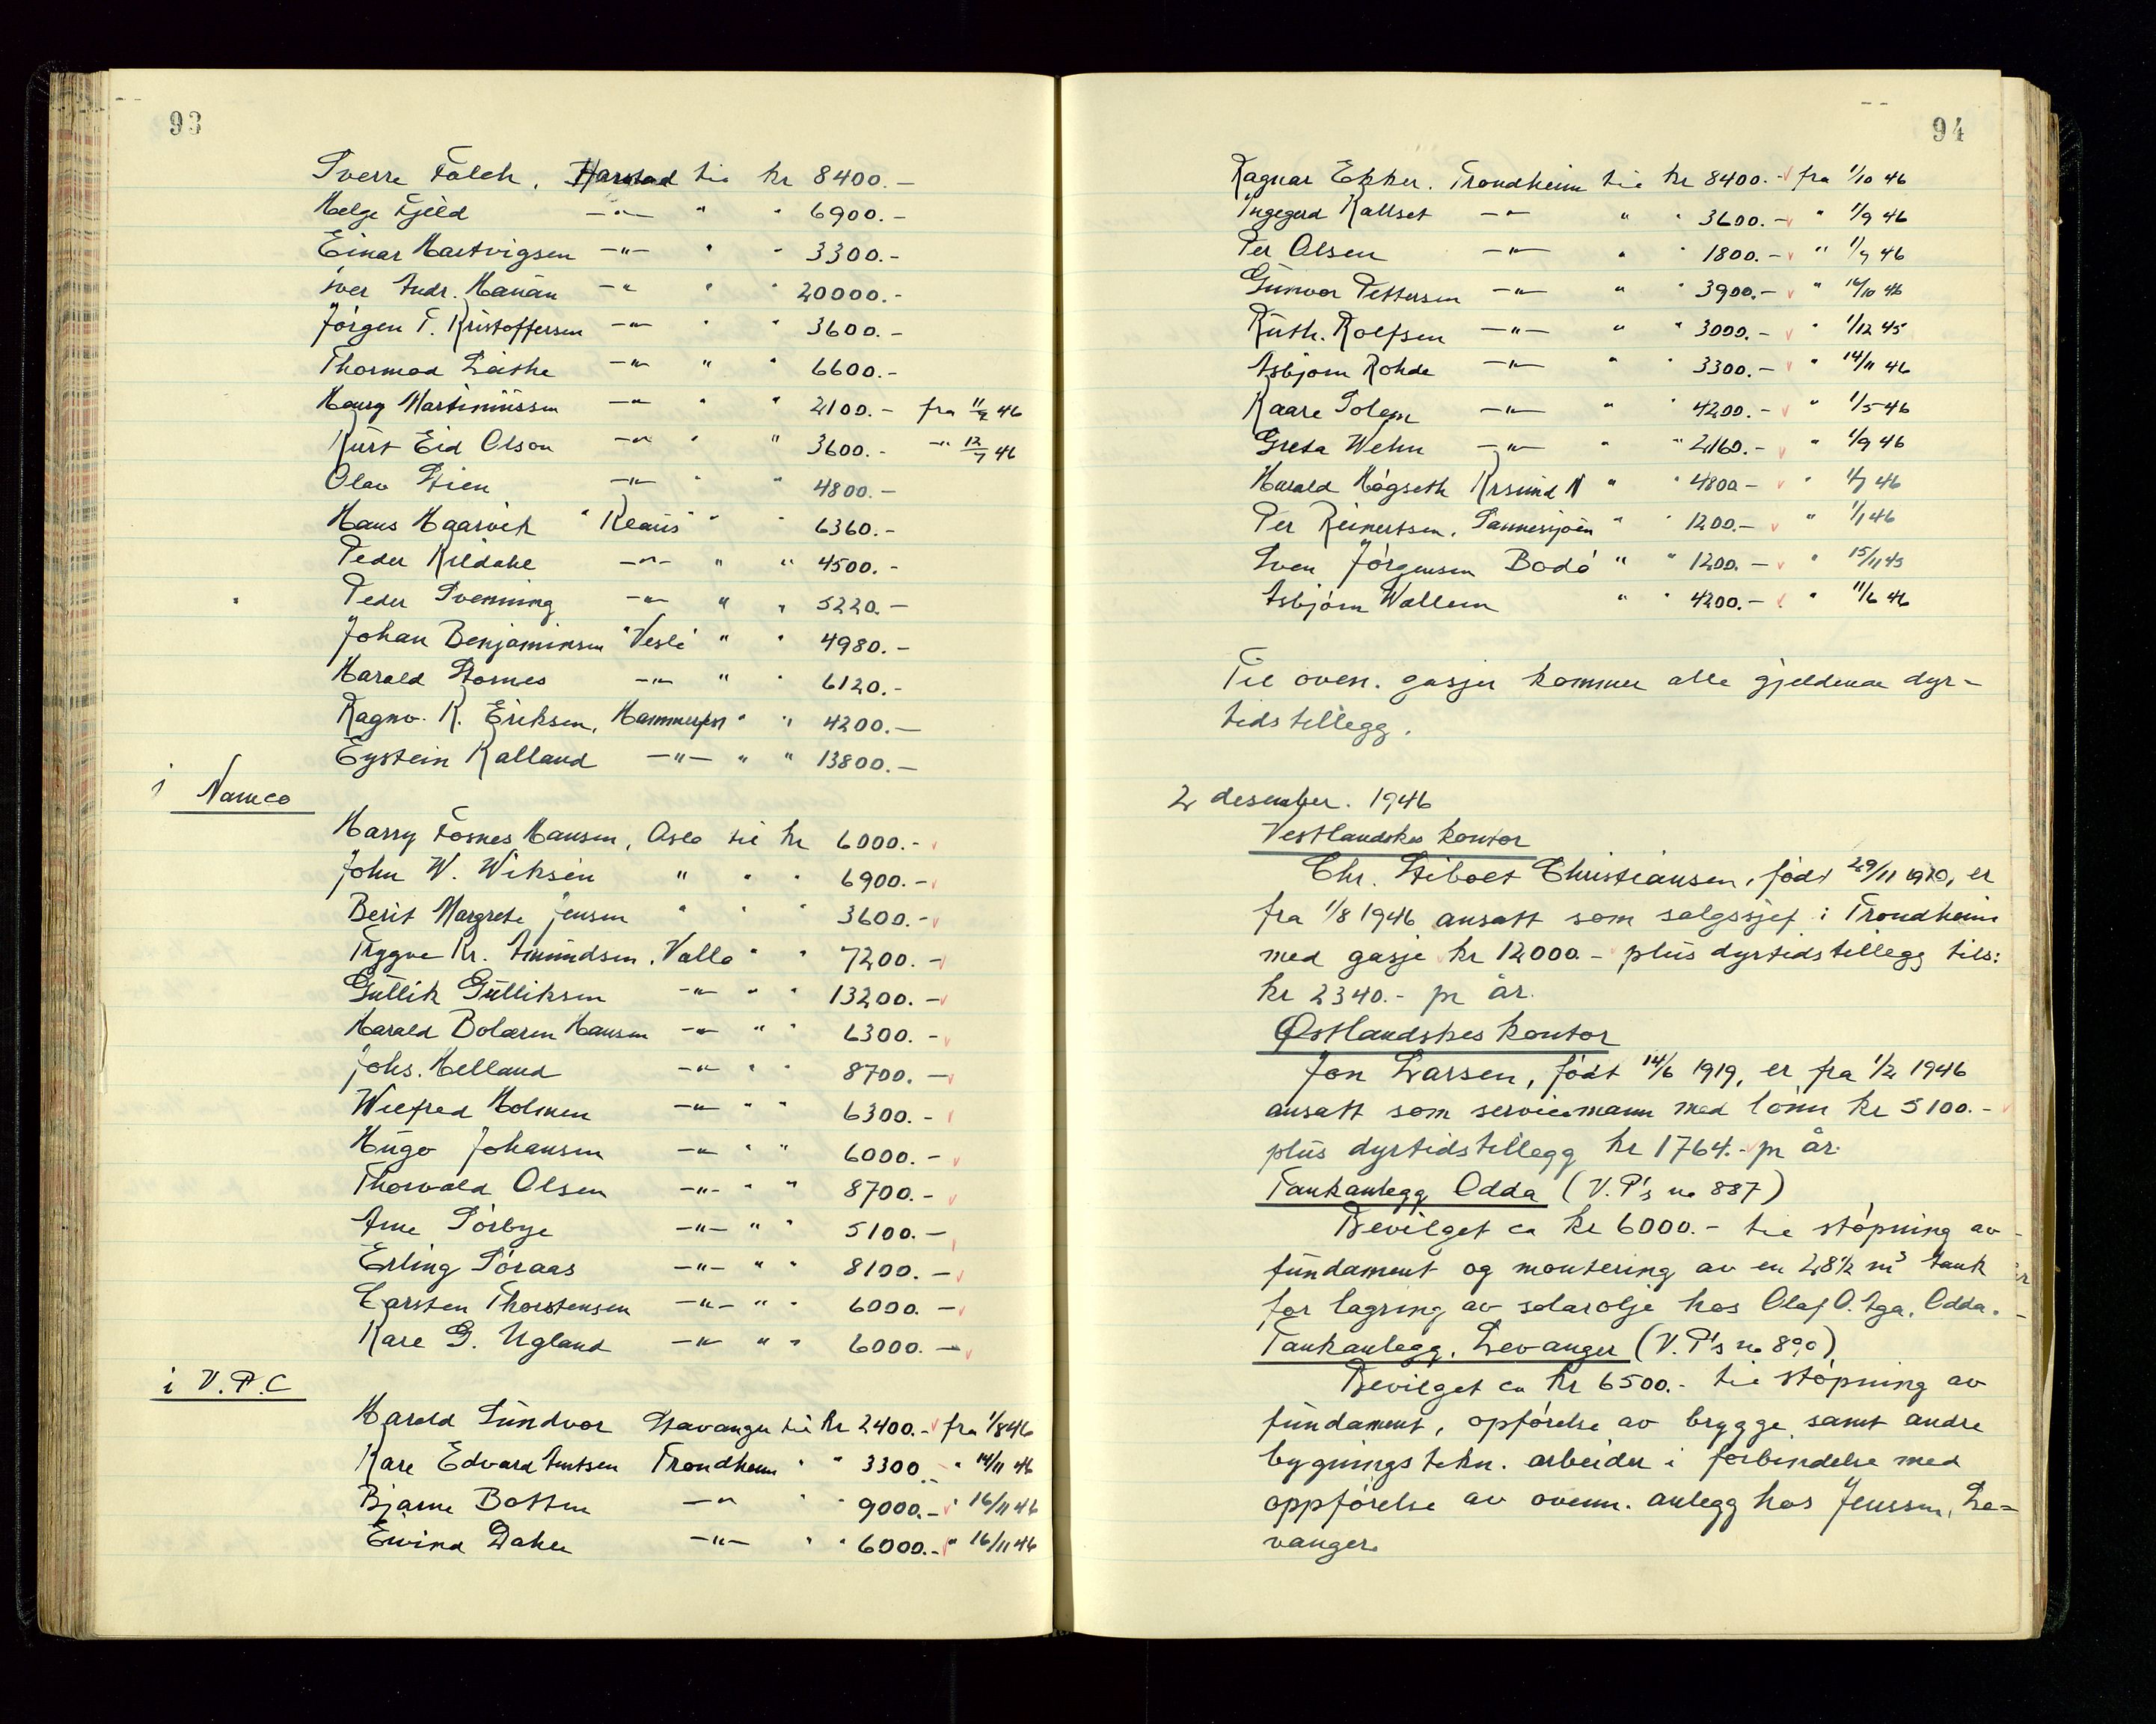 93
Sverre Falch, Harstad til kr 8400.-
Helge Fjeld -"- " " 6900.-
Einar Hartvigsen -"- " " 3300.-
Iver Andr. Hanan -"- " " 20000.-
Jörgen T. Kristoffersen -"- " " 3600.-
Thormod Leithe -"- " " 6600.-
Haug Martiniussen -"- " " 2100.- fra 11/2 46
Kurt Eid Olson -"- " " 3600.- -"- 12/7 46
Olav Stien -"- " " 4800.-
Hans Haarvik "Klaus" " " 6360.-
Peder Kildahl -"- " " 4500.-
Peder Svenning -"- " " 5220.-
Johan Benjaminsen "Vesla" " " 4980.-
Harald Stornes -"- " " 6120.-
Ragnv. K. Eriksen, Hammerfest " " 4200.-
Eystein Kalland -"- " " 13800.-
i Namco
Harry Fosnes Hansen, Oslo til kr 6000.-
John W. Wiksén " " " 6900.-
Berit Margrete Jensen " " " 3600.-
Trygve Kr. Amundsen, Vallø " " 7200.-
Gullik Gulliksen -"- " " 13200.-
Harald Bolærn Hansen -"- " " 6300.-
Johs. Helland -"- " " 8700.-
Wilfred Holmen -"- " " 6300.-
Hugo Johansen -"- " " 6000.-
Thorvald Olsen -"- " " 8700.-
Arne Sörbye -"- " " 5100.-
Erling Söraas -"- " " 8100.-
Carsten Thorstensen -"- " " 6000.-
Kare G. Ugland -"- " " 6000.-
i V.P.C
Harald Sundvor Stavanger til kr 2400.- fra 1/8 46
Kare Edvard Arntsen Trondheim " " 3300.- " 14/11 46
Bjarne Botten -"- " " 9000.- " 16/11 46
Eivind Dahle -"- " " 6000.- " 16/11 46
94
Ragnar Ekker. Trondheim til kr 8400.- fra 1/10 46
Ingegerd Kallset -"- " " 3600.- " 1/9 46
Per Olsen -"- " " 1800.- " 1/9 46
Gunvor Pettersen -"- " " 3900.- " 16/10 46
Ruth. Rolfsen -"- " " 3000.- " 1/12 45
Asbjörn Rohde -"- " " 3300.- " 14/11 46
Kaare Solem -"- " " 4200.- " 1/5 46
Greta Wehn -"- " " 2160.- " 1/9 46
Harald Högseth Krsund N " " 4800.- " 1/7 46
Per Reinertsen, Sannesjöen " " 1200.- " 1/1 46
Sven Jörgensen Bodö " " 1200.- " 15/11 45
Asbjörn Wallem " " 4200.- " 11/6 46
Til oven. gasjer kommer alle gjeldende dyr-
tidstillegg.
2 desember. 1946
Vestlandskes kontor
Chr. Stibolt Christiansen, född 29/11 1920, er
fra 1/8 1946 ansatt som salgssjef i Trondheim
med gasje kr 12000.- plus dyrtidstillegg tils:
kr 2340.- pr år.
Østlandskes kontor
Jon Larsen, födt 14/6 1919, er fra 1/2 1946
ansatt som servicemann med lönn kr 5100.-
plus dyrtidstillegg kr 1764.- pr år.
Tankanlegg Odda (V.P's no 887)
Bevilget ca kr 6000.- til stöpning av
fundament og montering av en 28 1/2 m³ tank
for lagring av solarolje hos Olaf O. Aga, Odda.
Tankanlegg, Levanger (V.P's no 890)
Bevilget ca kr 6500.- til stöpning av
fundament, opförelse av brygge samt andre
bygningstekn. arbeider i forbindelse med
oppförelse av ovenn. anlegg hos Jenssen, Le-
vanger.